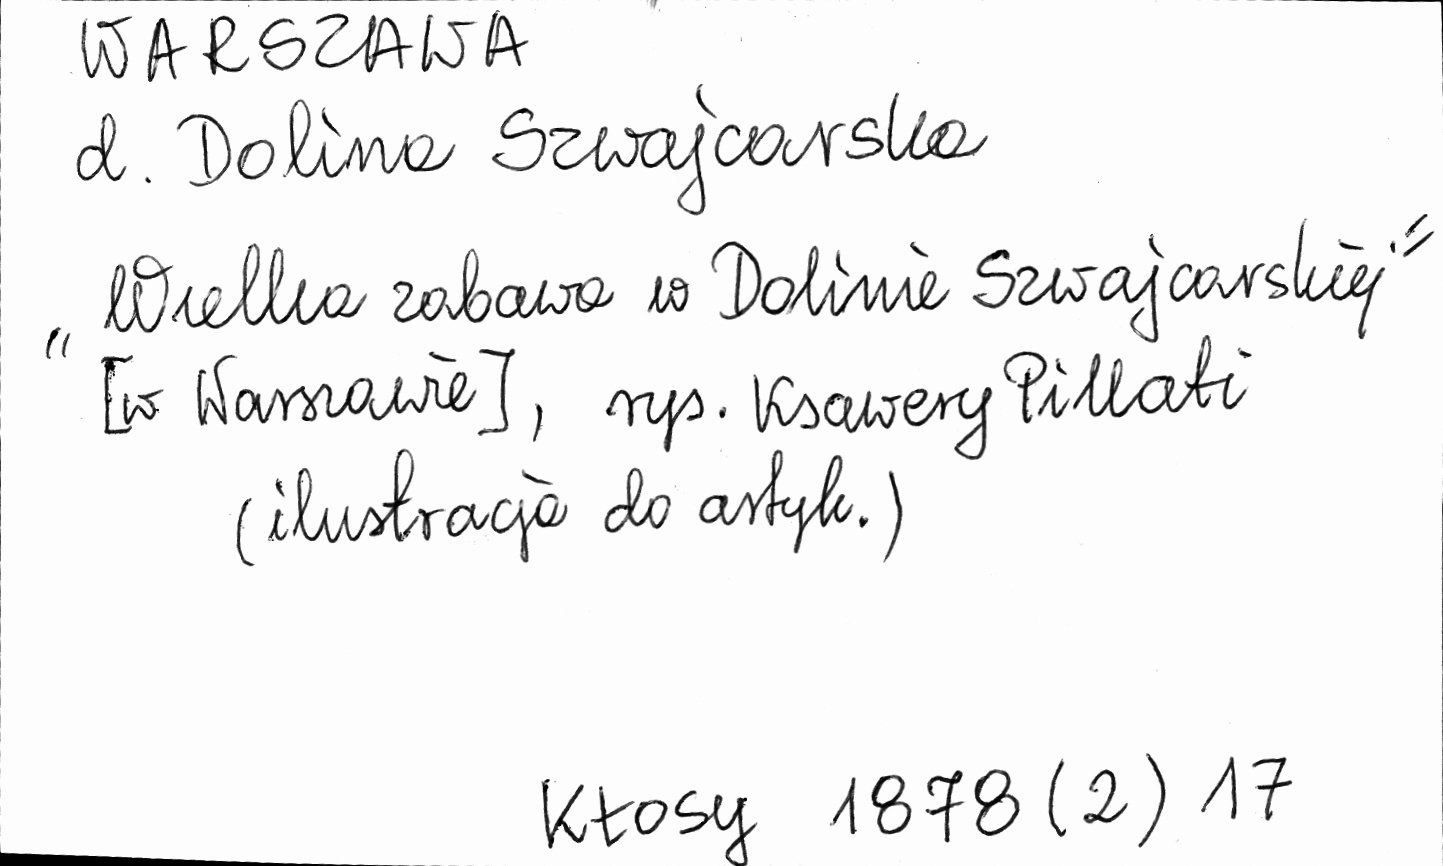 WARSZAWA
d. Dolina Szwajcarska
„Wielka zabawa w Dolinie Szwajcarskiej"
[w Warszawie], rys. Ksawery Pillati
(ilustracja do artyk.)
Kłosy 1878 (2) 17